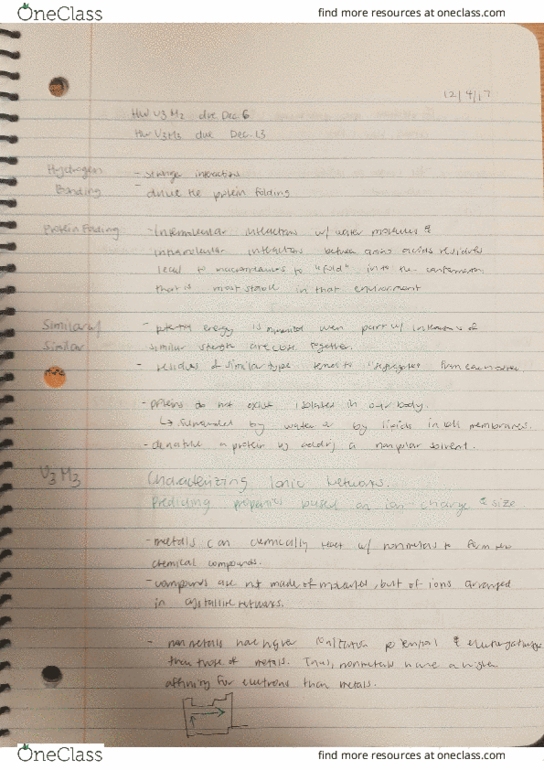 OneClass
find more resources at oneclass.com
12/4/17
HW U3M2 due Dec. 6
HW U3M3 due Dec. 13
Hydrogen
Bonding
- stronger interactions
- drive the protein folding
Protein Folding
- Intermolecular interactions w/ water molecules &
intramolecular interactions between amino acids residues
lead to macromolecules to "fold" into the conformation
that is most stable in that environment
Similar w/
Similar
- potential energy is minimized when part w/ interactions of
similar strength are close together.
- residues of similar type tend to "segregate" from each other
- proteins do not exist isolated in our body.
↳ surrounded by water or by lipids in cell membranes.
- denature a protein by adding a nonpolar solvent.
U3M3
Characterizing Ionic Networks.
Predicting properties based on ion charge & size
- metals can chemically react w/ nonmetals to form
chemical compounds.
- compounds are not made of molecules, but of ions arranged
in crystalline networks.
- nonmetals have higher ionization potential & electronegativity
than those of metals. Thus, nonmetals have a higher
affinity for electrons than metals.
OneClass
find more resources at oneclass.com